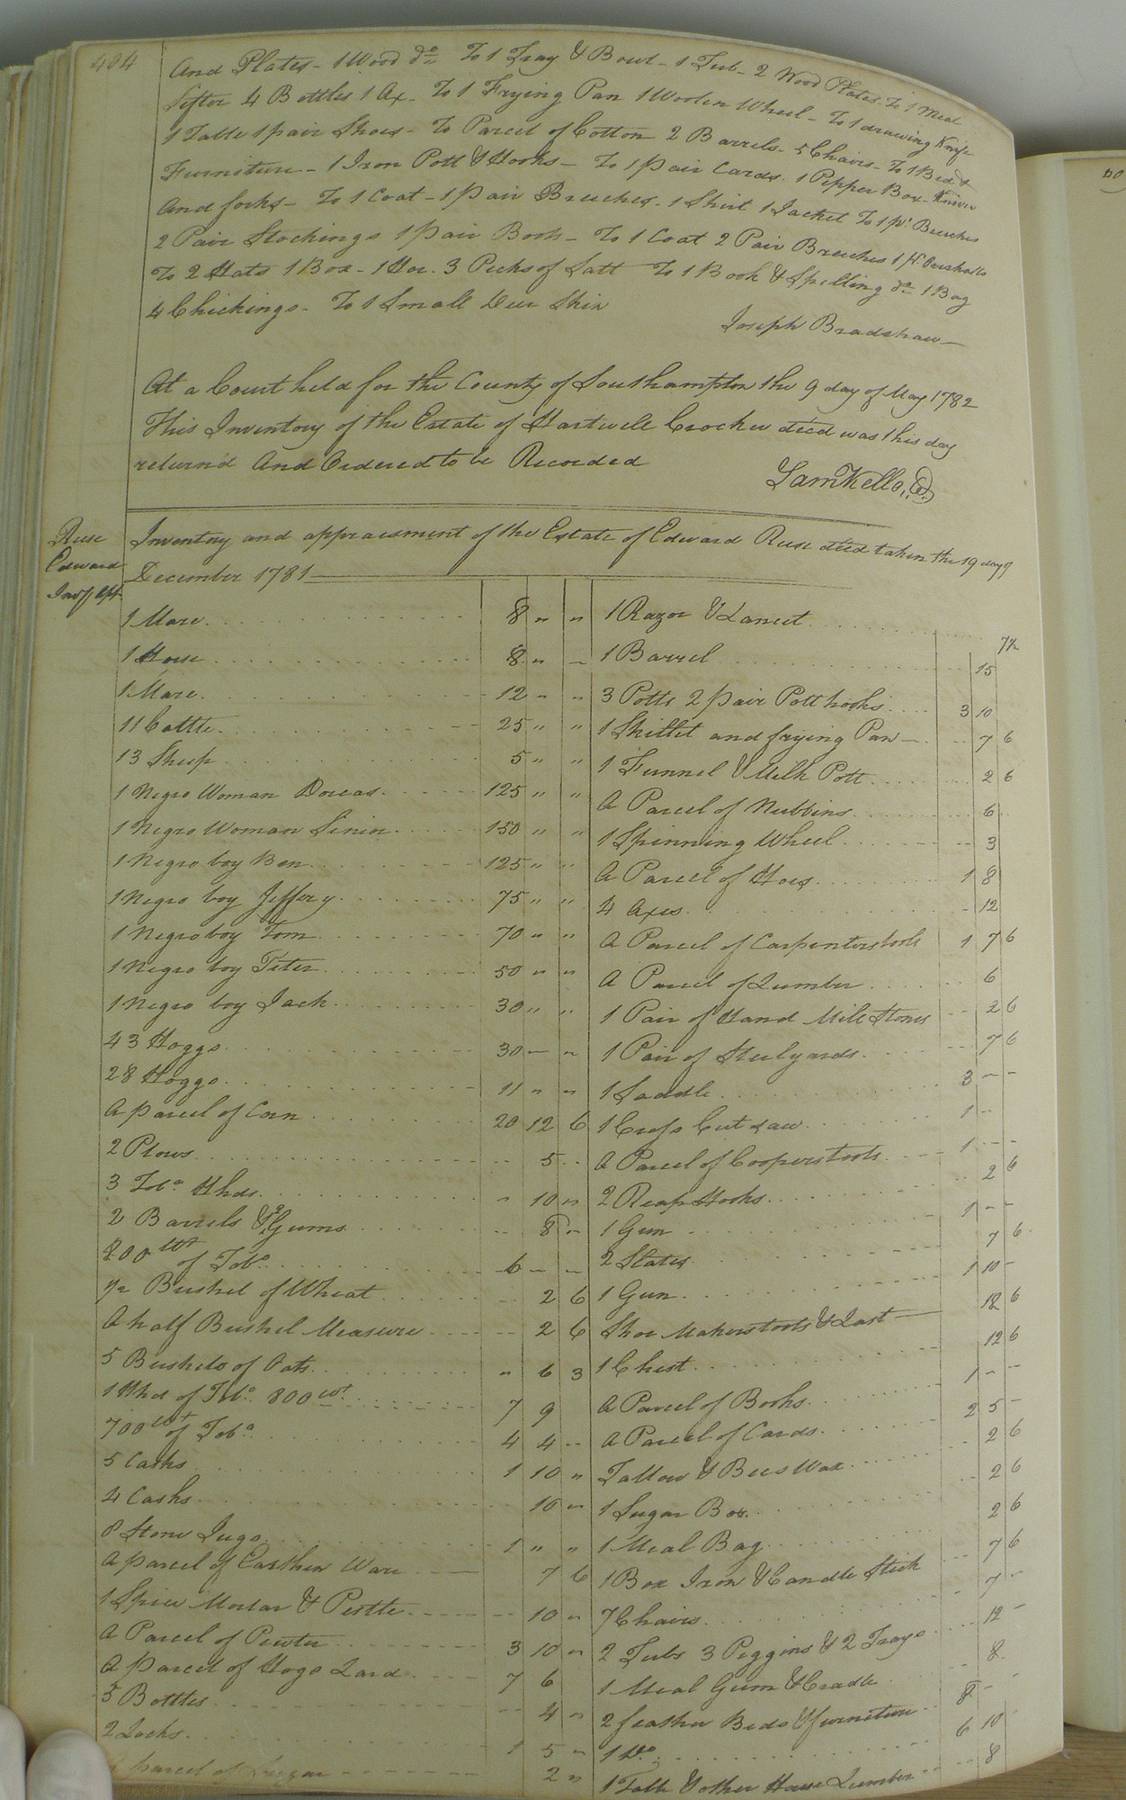 484
And Plates - 1 Wood do To 1 Tray & Bowl - 1 Tub - 2 Wood Plates. To 1 Meal
Sifter 4 Bottles 1 Ax - To 1 Frying Pan 1 Woolen Wheel - To 1 drawing Knife
1 Table 1 pair Shoes - To Parcel of Cotton 2 Barrels - 5 Chairs - To 1 Bed &
Furniture - 1 Iron Pott & Hooks - To 1 pair Cards. 1 Pepper Box - Knives
And forks - To 1 Coat - 1 pair Breeches - 1 Shirt 1 Jacket To 1 pr Breeches
2 Pair Stockings 1 pair Boots - To 1 Coat 2 Pair Breeches 1 pr
To 2 Hats 1 Box - 1 Hoe. 3 Pecks of Salt To 1 Book & Spelling do 1 Bag
4 Chickings - To 1 Small Deer Skin
Joseph Bradshaw
At a Court held for the County of Southampton the 9 day of May 1782
This Inventory of the Estate of Hartwell Crocker decd was this day
returnd And Ordered to be Recorded
Saml Kello, C.C.
Ruse
Edward
Invy Apt.
Inventory and appraisment of the Estate of Edward Ruse decd taken the 19 day of
December 1781
1 Mare 8 " "
1 Horse 8 " -
1 Mare 12 " "
11 Cattle 25 " "
13 Sheep 5 " "
1 Negro Woman Dorcas 125 " "
1 Negro Woman Sinior 150 " "
1 Negro boy Ben 125 " "
1 Negro boy Jeffery 75 " "
1 Negro boy Tom 70 " "
1 Negro boy Peter 50 " "
1 Negro boy Jack 30 " "
43 Hoggs 30 - "
28 Hoggs 11 " "
A parcel of Corn 20 12 6
2 Plows 5 -
3 Tobo Hhds " 10 "
2 Barrels & 2 Gums 8 "
200 wt of Tobo 6 - -
1/2 Bushel of Wheat 2 6
A half Bushel Measure 2 6
5 Bushels of Oats " 6 3
1 Hhd of Tobo 800 wt 7 9
700 wt of Tobo 4 4 -
5 Casks 1 10 "
4 Casks 10 "
8 Stone Jugs 1 " "
A parcel of Earthen Ware 7 6
1 Spice Mortar & Pestle 10 "
A Parcel of Pewter 3 10 "
A parcel of Hogs Lard 7 6
5 Bottles 4 "
2 Locks 1 5 "
A parcel of Sugar 2 "
1 Razor & Lancet 7/2
1 Barrel 15
3 Potts 2 pair Potthooks 3 10
1 Skillet and frying Pan 7 6
1 Funnel & Milk Pott 2 6
A Parcel of Nubbins 6
1 Spinning Wheel 3
A Parcel of Hoes 1 8
4 Axes 12
A Parcel of Carpenterstools 1 7 6
A Parcel of Lumber 6
1 Pair of Hand Mill Stones 2 6
1 Pair of Steelyards 7 6
1 Saddle 3 - -
1 Cross Cut Saw 1 -
A Parcel of Cooperstools 1 - -
2 Reap Hooks 2 6
1 Gun 1 - -
2 Slates 7 6
1 Gun 1 10 -
Shoe Makerstools & Last 12 6
1 Chest 12 6
A Parcel of Books 1 - -
A Parcel of Cards 2 5 -
Tallow & Bees Wax 2 6
1 Sugar Box 2 6
1 Meal Bag 2 6
1 Box Iron & Candle Stick 7 6
7 Chairs 7 -
2 Tubs 3 Peggins & 2 Trays 12 -
1 Meal Gum & Cradle 8
2 feather Beds & furniture 8 -
1 Do 6 10
1 Table & other House Lumber 8